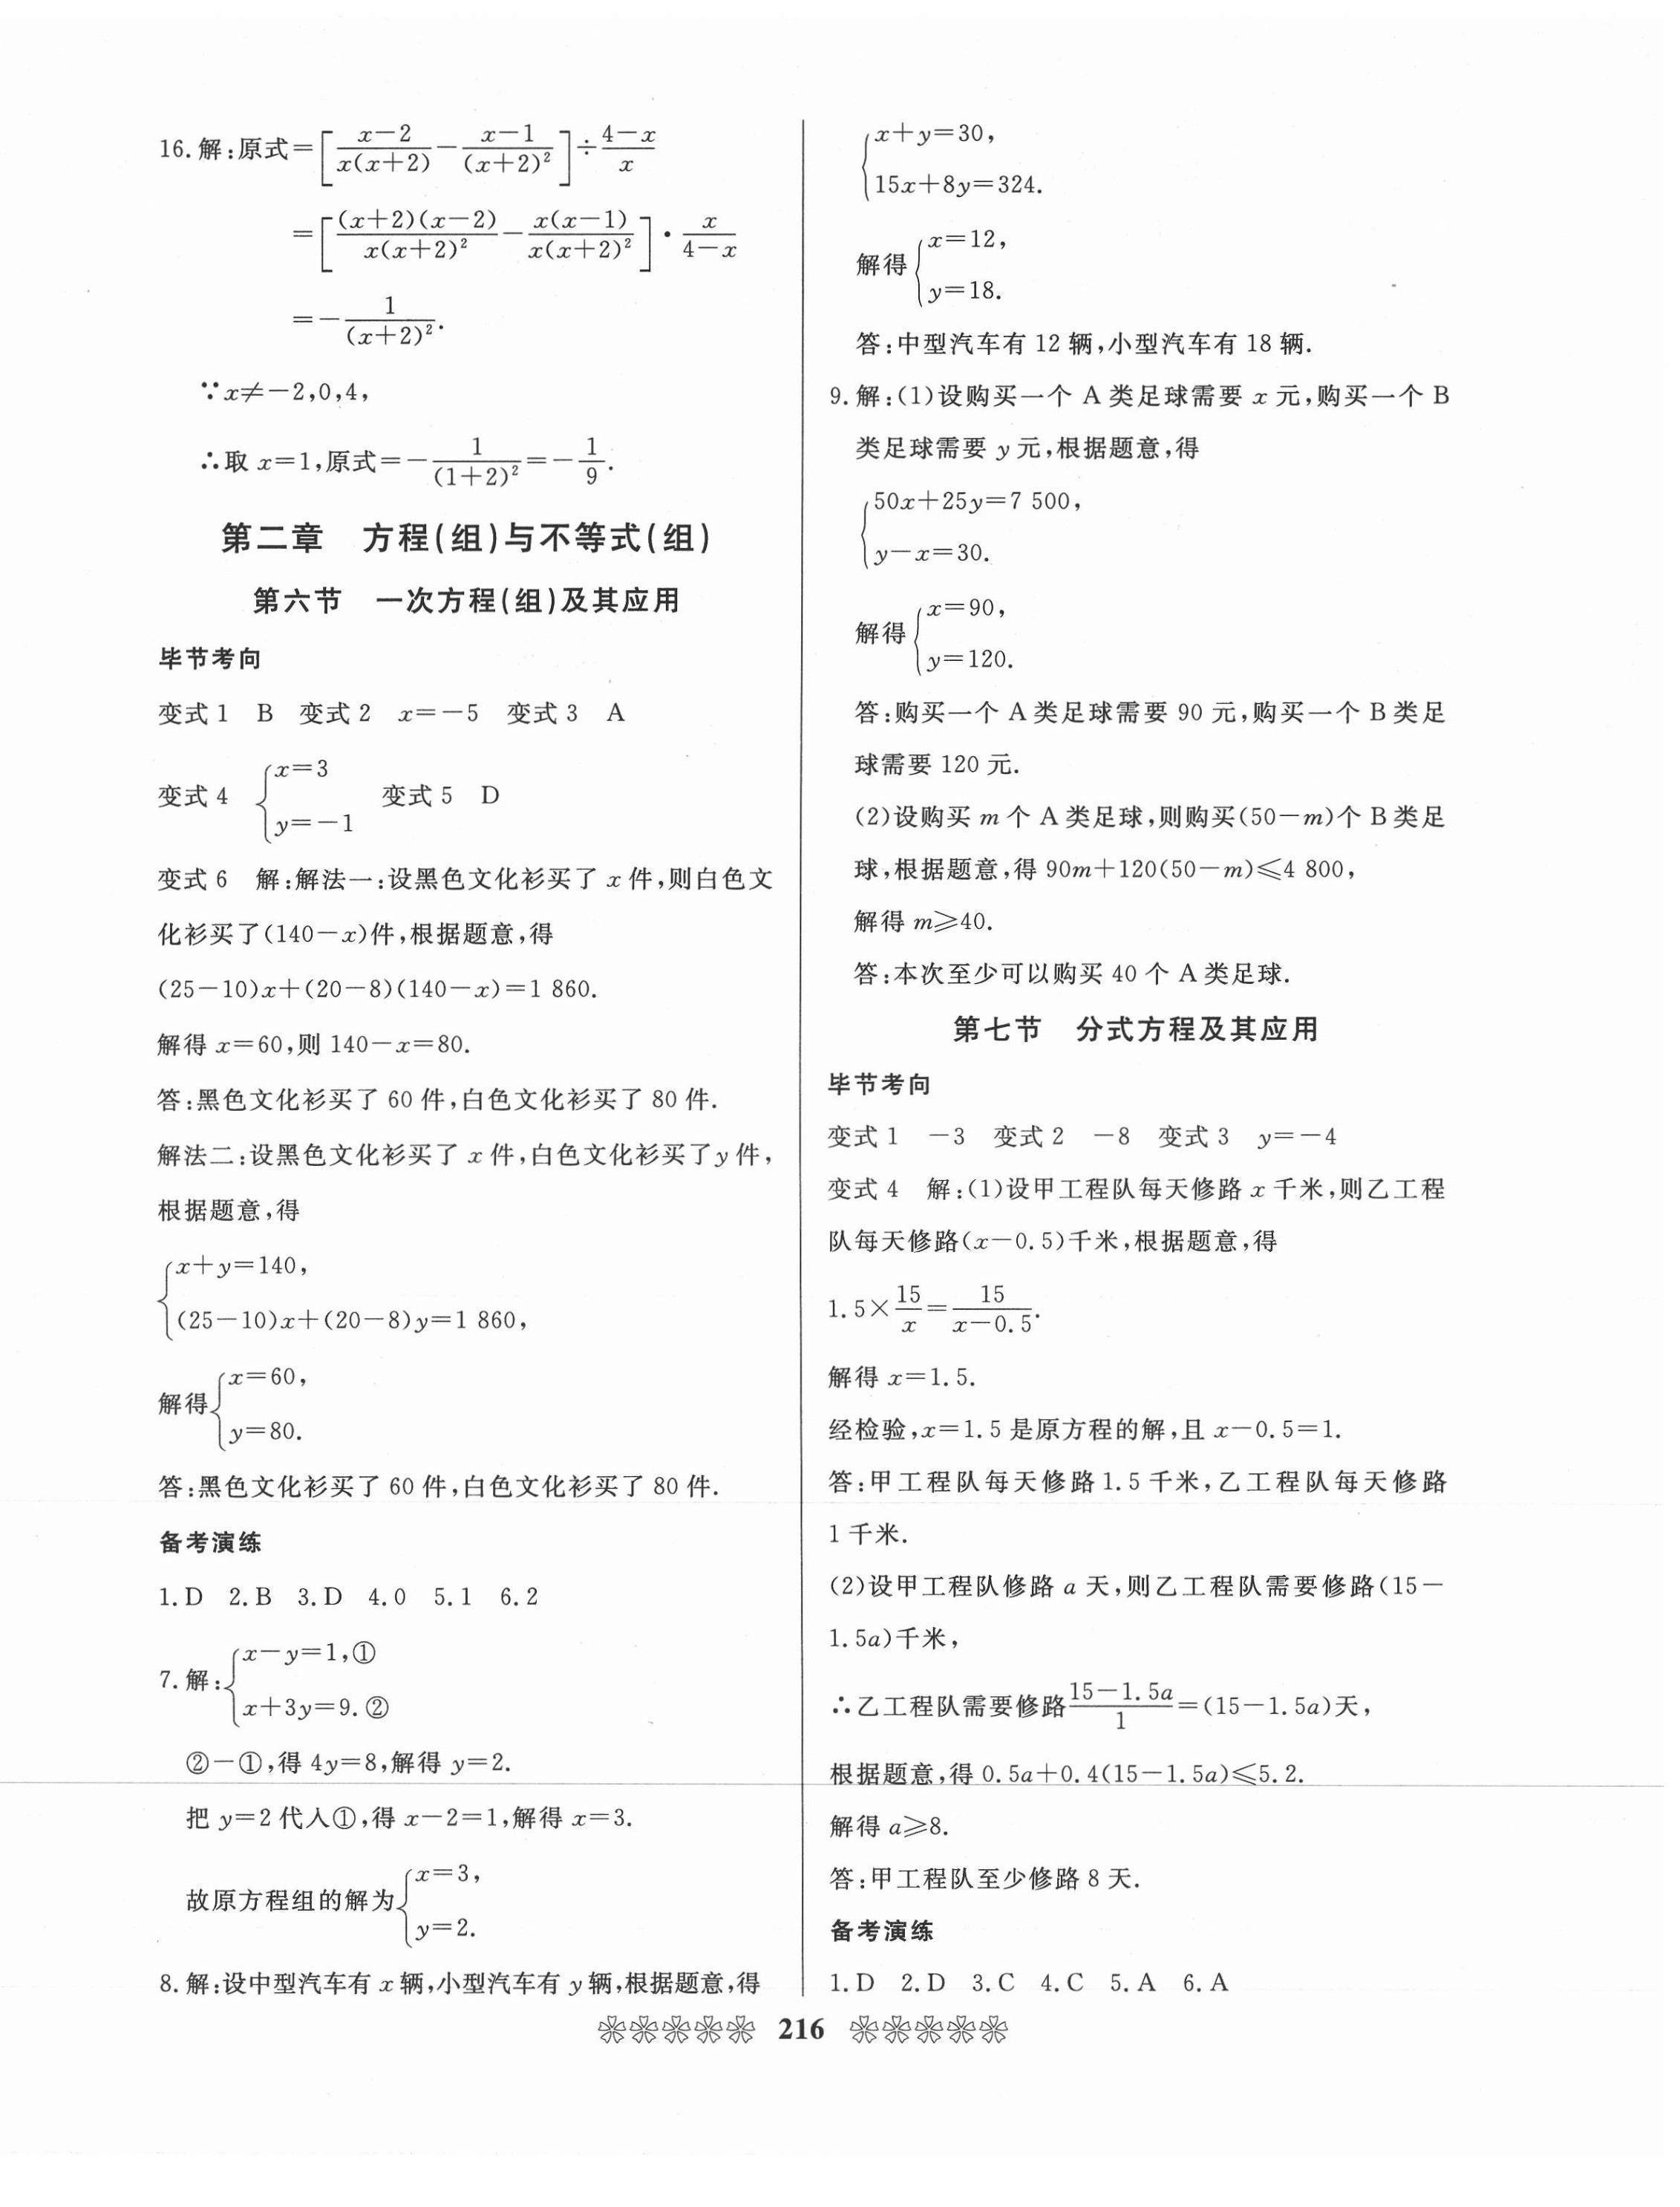 16.解:原式=[\frac{x-2}{x(x+2)}-\frac{x-1}{(x+2)^2}]÷\frac{4-x}{x}
=[\frac{(x+2)(x-2)}{x(x+2)^2}-\frac{x(x-1)}{x(x+2)^2}]·\frac{x}{4-x}
=-\frac{1}{(x+2)^2}.
∵x≠-2,0,4,
∴取 x=1,原式=-\frac{1}{(1+2)^2}=-\frac{1}{9}.
第二章 方程(组)与不等式(组)
第六节 一次方程(组)及其应用
毕节考向
变式1 B 变式2 x=-5 变式3 A
变式4 {x=3
y=-1 变式5 D
变式6 解:解法一:设黑色文化衫买了 x 件,则白色文
化衫买了(140-x)件,根据题意,得
(25-10)x+(20-8)(140-x)=1 860.
解得 x=60,则 140-x=80.
答:黑色文化衫买了 60 件,白色文化衫买了 80 件.
解法二:设黑色文化衫买了 x 件,白色文化衫买了y件,
根据题意,得
{x+y=140,
(25-10)x+(20-8)y=1 860,
解得{x=60,
y=80.
答:黑色文化衫买了 60 件,白色文化衫买了 80 件.
备考演练
1.D 2.B 3.D 4.0 5.1 6.2
7.解:{x-y=1,①
x+3y=9.②
②-①,得 4y=8,解得 y=2.
把 y=2 代入①,得 x-2=1,解得 x=3.
故原方程组的解为{x=3,
y=2.
8.解:设中型汽车有 x 辆,小型汽车有 y 辆,根据题意,得
{x+y=30,
15x+8y=324.
解得{x=12,
y=18.
答:中型汽车有 12 辆,小型汽车有 18 辆.
9.解:(1)设购买一个 A 类足球需要 x 元,购买一个 B
类足球需要 y 元,根据题意,得
{50x+25y=7 500,
y-x=30.
解得{x=90,
y=120.
答:购买一个 A 类足球需要 90 元,购买一个 B 类足
球需要 120 元.
(2)设购买 m 个 A 类足球,则购买(50-m)个 B 类足
球,根据题意,得 90m+120(50-m)≤4 800,
解得 m≥40.
答:本次至少可以购买 40 个 A 类足球.
第七节 分式方程及其应用
毕节考向
变式1 -3 变式2 -8 变式3 y=-4
变式4 解:(1)设甲工程队每天修路 x 千米,则乙工程
队每天修路(x-0.5)千米,根据题意,得
1.5×\frac{15}{x}=\frac{15}{x-0.5}.
解得 x=1.5.
经检验,x=1.5 是原方程的解,且 x-0.5=1.
答:甲工程队每天修路1.5千米,乙工程队每天修路
1千米.
(2)设甲工程队修路 a 天,则乙工程队需要修路(15-
1.5a)千米,
∴乙工程队需要修路\frac{15-1.5a}{1}=(15-1.5a)天,
根据题意,得 0.5a+0.4(15-1.5a)≤5.2.
解得 a≥8.
答:甲工程队至少修路 8 天.
备考演练
1.D 2.D 3.C 4.C 5.A 6.A
216